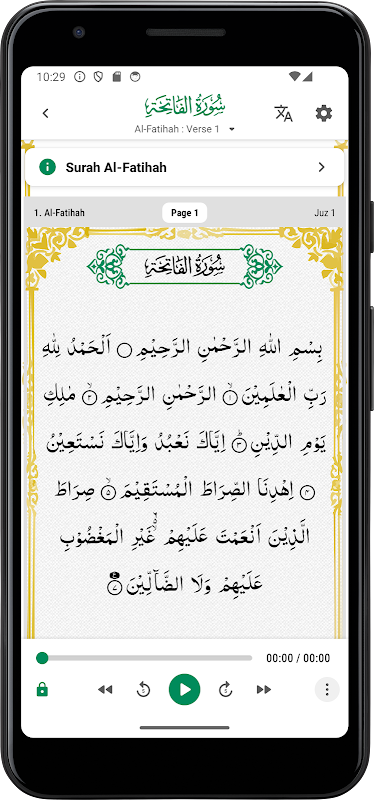 10:29
سُوْرَةُ الْفَاتِحَةِ
Al-Fatihah : Verse 1
Surah Al-Fatihah
1. Al-Fatihah Page 1 Juz 1
سُوْرَةُ الْفَاتِحَةِ
بِسْمِ اللّٰهِ الرَّحْمٰنِ الرَّحِيْمِ ۝ اَلْحَمْدُ لِلّٰهِ
رَبِّ الْعٰلَمِيْنَ ۝۱ الرَّحْمٰنِ الرَّحِيْمِ ۝۲ مٰلِكِ
يَوْمِ الدِّيْنِ ۝۳ اِيَّاكَ نَعْبُدُ وَاِيَّاكَ نَسْتَعِيْنُ
۝۴ اِهْدِنَا الصِّرَاطَ الْمُسْتَقِيْمَ ۝۵ صِرَاطَ
الَّذِيْنَ اَنْعَمْتَ عَلَيْهِمْ ۝ۙ۬ غَيْرِ الْمَغْضُوْبِ
عَلَيْهِمْ وَلَا الضَّآلِّيْنَ ۝۷
00:00 / 00:00
5 5